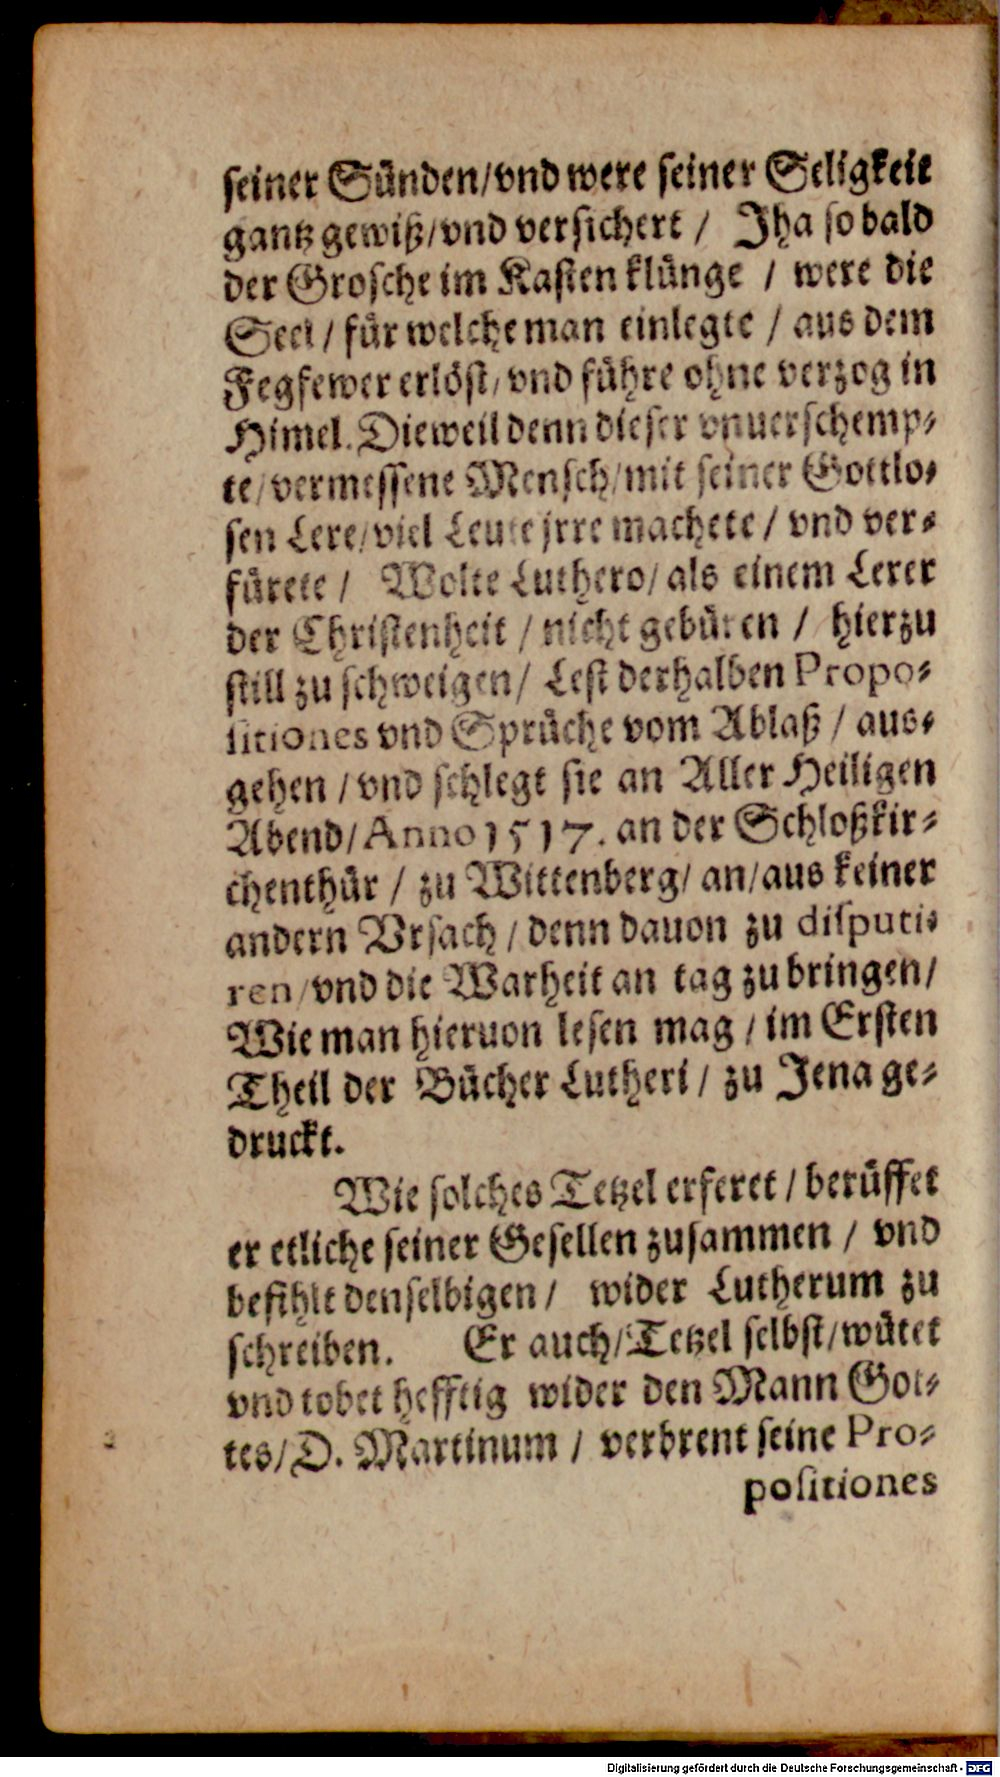 seiner Sünden/vnd were seiner Seligkeit
gantz gewiß/vnd versichert / Jha so bald
der Grosche im Kasten klünge / were die
Seel / für welche man einlegte / aus dem
Fegfewer erlöst/ vnd führe ohne verzog in
Himel. Dieweil denn dieser vnuerschemp-
te/vermessene Mensch/mit seiner Gottlo-
sen Lere/viel Leute jrre machete / vnd ver-
fürete / Wolte Luthero/ als einem Lerer
der Christenheit / nicht gebüren / hierzu
still zu schweigen/ Lest derhalben Propo-
sitiones vnd Sprüche vom Ablaß / aus-
gehen / vnd schlegt sie an Aller Heiligen
Abend/Anno 1517. an der Schloßkir-
chenthür / zu Wittenberg/ an/aus keiner
andern Vrsach / denn dauon zu disputi-
ren/vnd die Warheit an tag zu bringen/
Wie man hieruon lesen mag / im Ersten
Theil der Bücher Lutheri / zu Jena ge-
druckt.
Wie solches Tetzel erferet / berüffet
er etliche seiner Gesellen zusammen / vnd
befihlt denselbigen / wider Lutherum zu
schreiben. Er auch/Tetzel selbst/wütet
vnd tobet hefftig wider den Mann Got-
tes/D. Martinum / verbrent seine Pro-
positiones
Digitalisierung gefördert durch die Deutsche Forschungsgemeinschaft - DFG